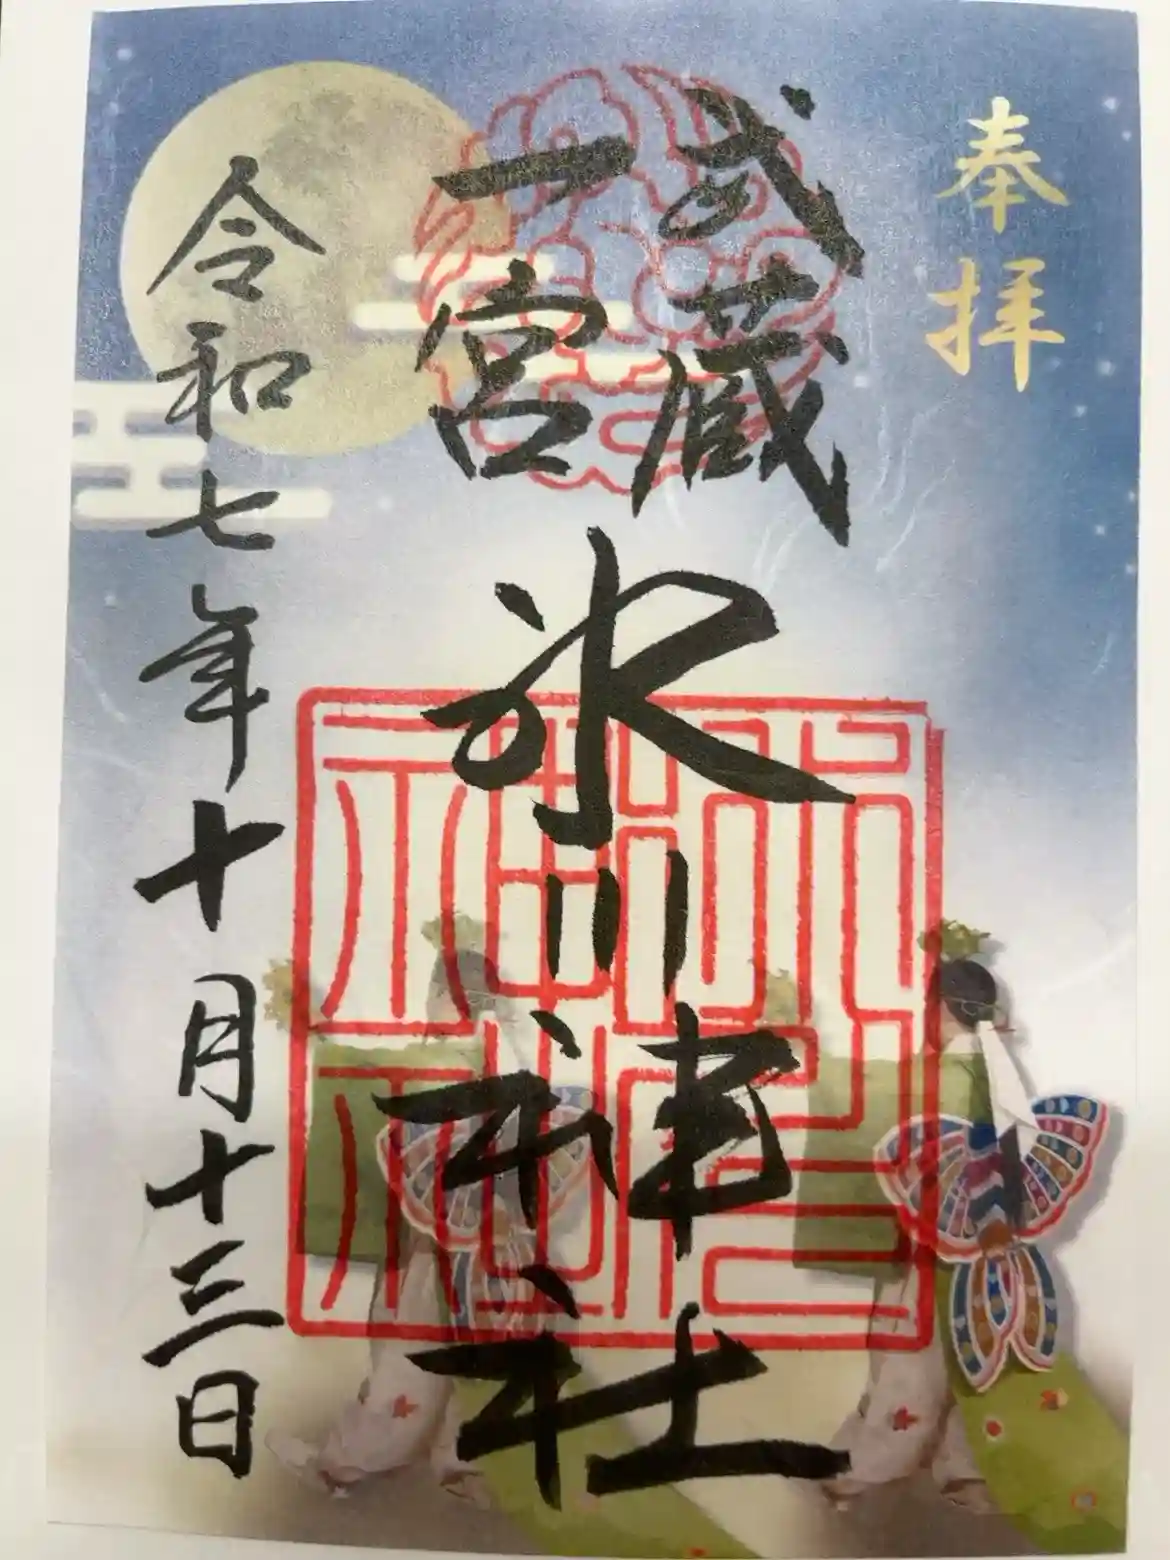 奉拝
武蔵
一宮
氷川神社
令和七年十月十三日
氷川
神社